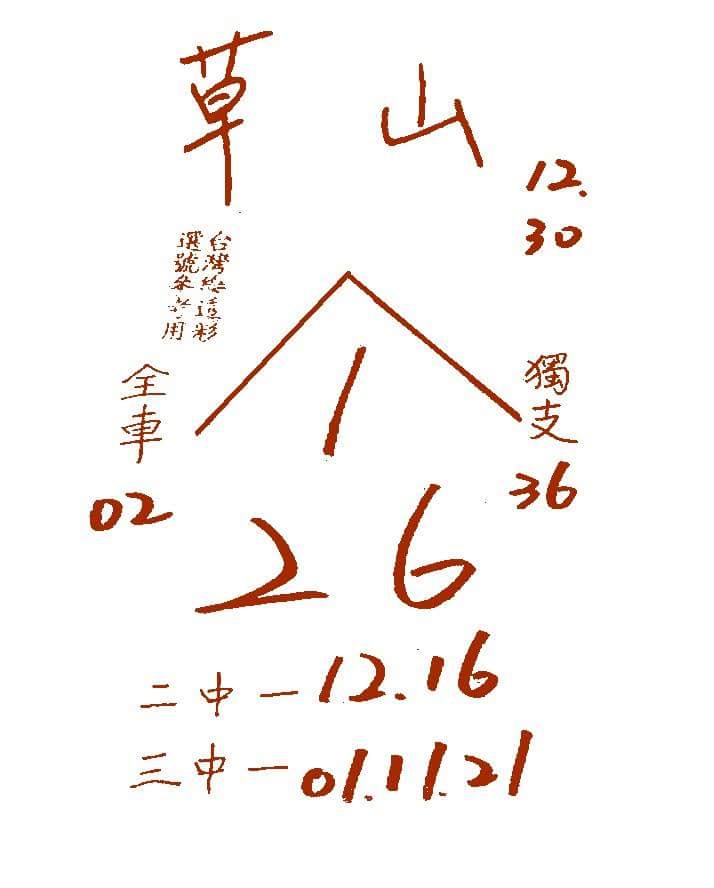 草山
12.
30
台灣樂透彩
選號參考用
全車
02
獨支
36
1
2 6
二中一12.16
三中一01.11.21